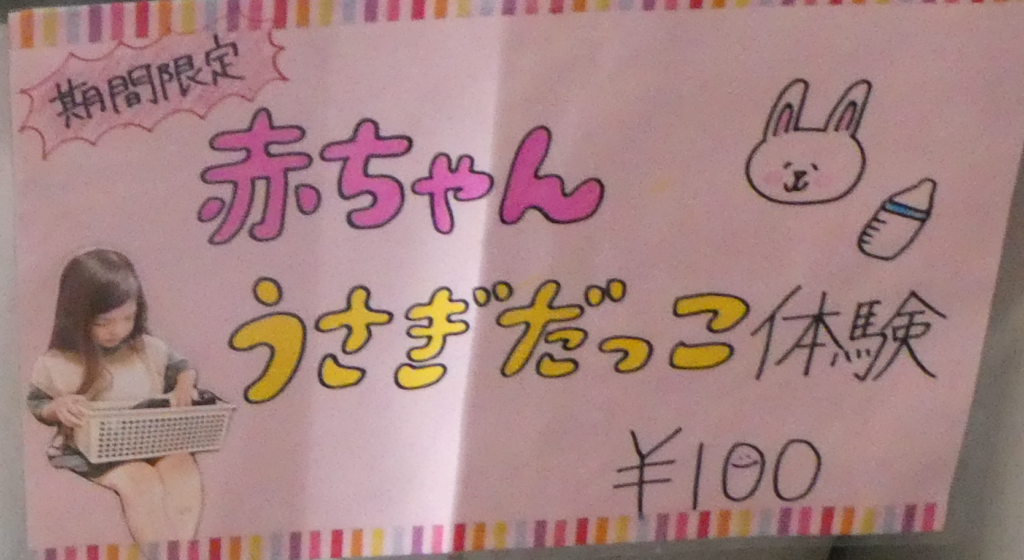 期間限定
赤ちゃん
うさぎだっこ体験
¥100